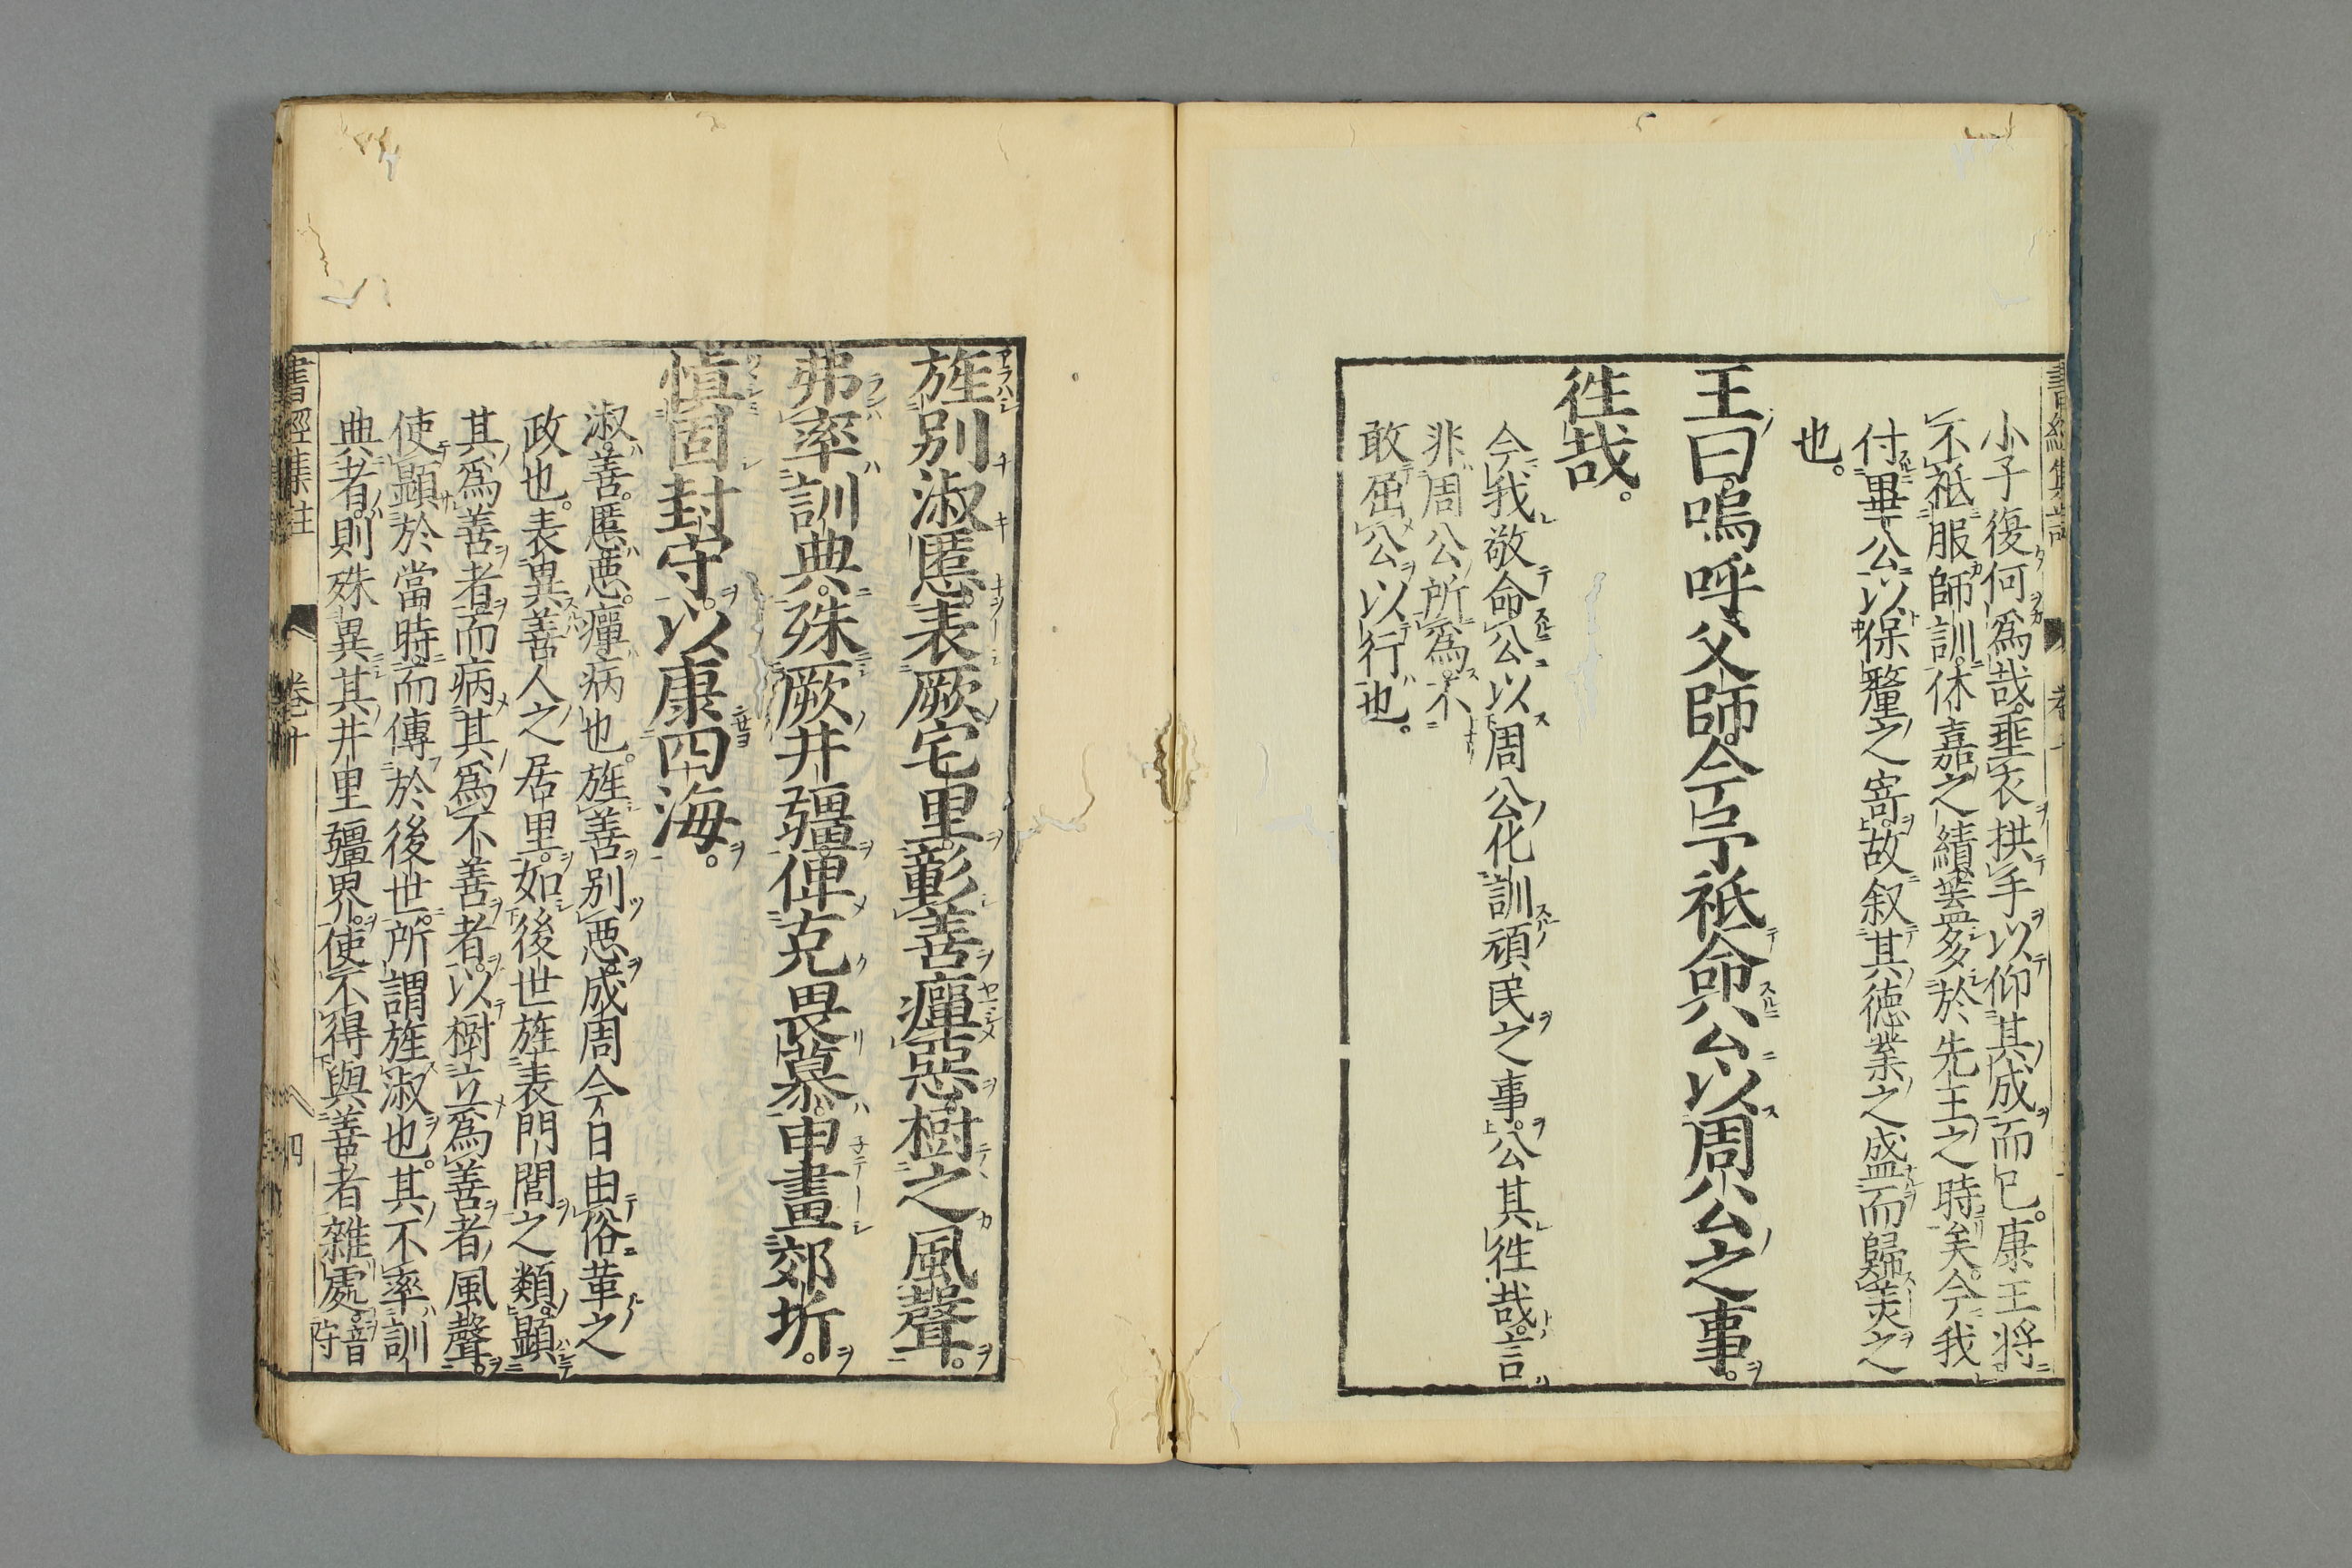 小子復何爲哉。垂衣拱手以仰其成而已。康王將
不祗服師訓。休嘉之績。蓋多於先王之時矣。今我
付畢公以保釐之寄。故叙其德業之盛而歸美之
也。
王曰。嗚呼父師。今予祗命公以周公之事。
徃哉。
今我敬命公以周公化訓頑民之事。公其徃哉。言
非周公所爲。不
敢屈公以行也。
旌別淑慝。表厥宅里。彰善癉惡。樹之風聲。
弗率訓典。殊厥井疆。俾克畏慕。申畫郊圻。
愼固封守。以康四海。
淑。善。慝。惡。癉。病也。旌善別惡。成周今日由俗革之
政也。表異善人之居里。如後世旌表門閭之類。顯
其爲善者。而病其爲不善者。以樹立爲善者風聲。
使顯於當時。而傳於後世。所謂旌淑也。其不率訓
典者。則殊異其井里疆界。使不得與善者雜處。
書經集註 卷十 四